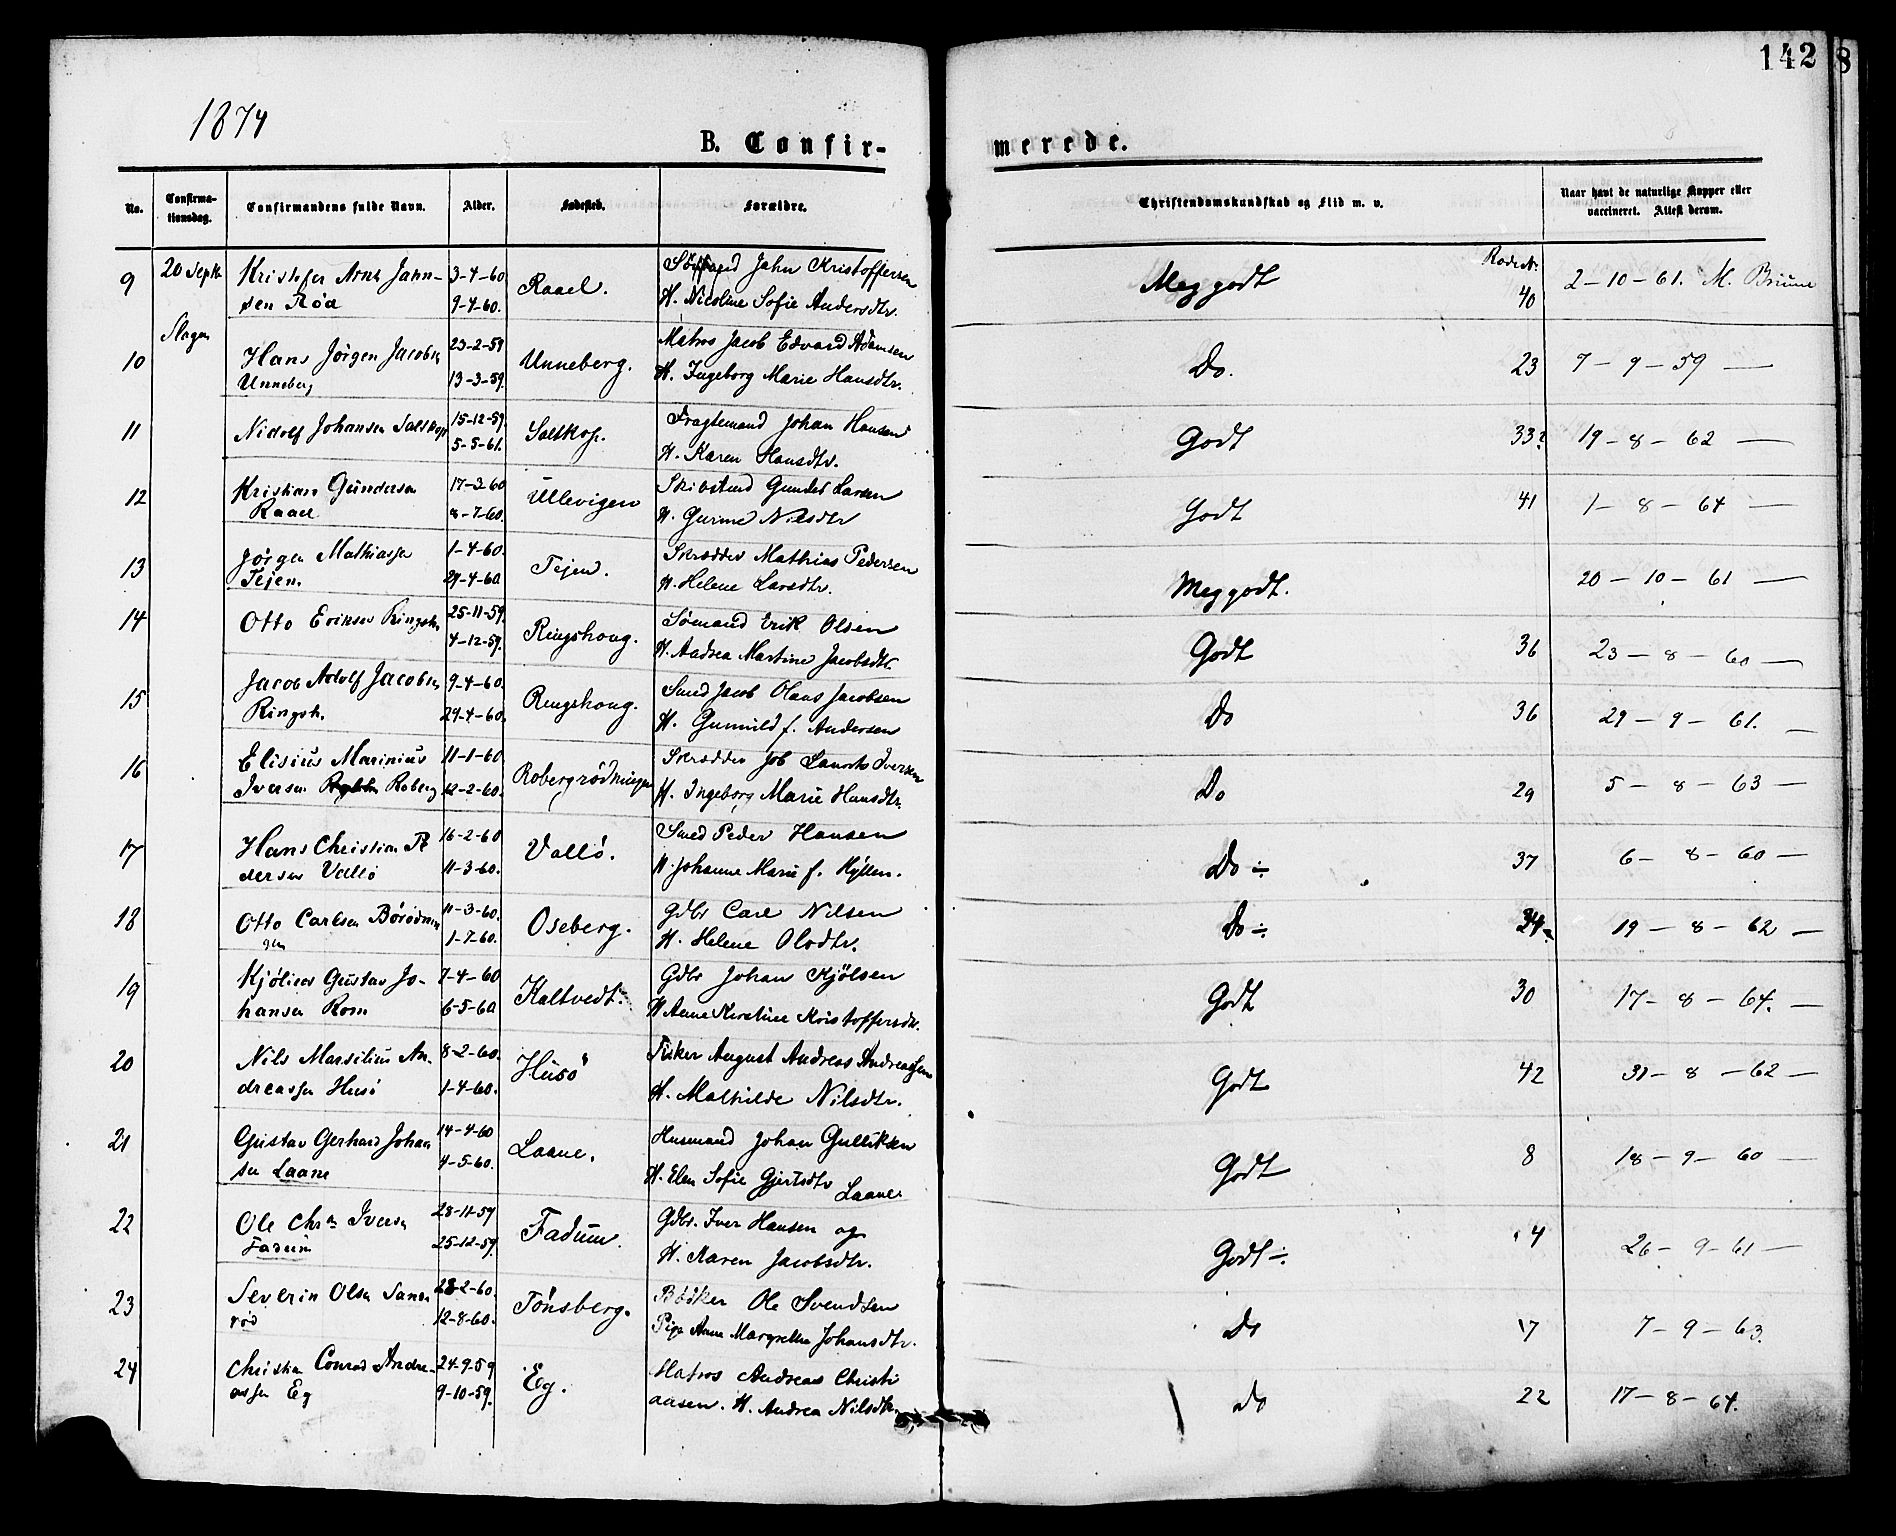 142
8
1874
B. Confir-
merede.
No.
Confirma-
tionsdag.
Confirmandens fulde Navn.
Alder.
Fødested.
Forældre.
Christendomskundskab og Flid m. v.
Naar havt de naturlige Kopper eller
vaccineret. Attest derom.
9 20 Sept. Kristofer Jahn- 3-4-60 Raael. Jahn Kristoffersen Meg godt 40 2-10-61. M. Bruun
sen Rød 9-4-60. H. Nicoline Sofie Andersdtr.
Slagen
10 Hans Jørgen Jacobsen 23-2-59 Unneberg. Matros Jacob Edvard Adamsen Do. 23 7-9-59 —
Unneberg 13-3-59. H. Ingeborg Marie Hansdtr.
11 Nidolf Johansen Saltkop 15-12-59. Saltkop. Fragtemand Johan Hansen Godt 33? 19-8-62 —
5-5-61. H. Karen Hansdtr.
12 Kristian Gundersen 17-3-60 Ullevigen Gunder Larsen Godt 41 1-8-64 —
Raael 8-7-60. H. Gurine Nilsdtr
13 Jørgen Mathiassen 1-4-60. Tejen. Skrædder Mathias Pedersen Meg godt. 20-10-61 —
Tejen. 29-4-60. H. Helene Larsdtr.
14 Otto Eriksen Ringsh. 25-11-59. Ringshoug. Sømand Erik Olsen Godt 36 23-8-60 —
4-12-59. H. Andrea Martine Jacobsdtr.
15 Jacob Adolf Jacobsen 9-4-60. Ringshoug. Smed Jacob Olaus Jacobsen Do 36 29-9-61. —
Ringsh. 29-4-60. H. Gunnild f. Andersen
16 Elisius Marinius 11-1-60. Robergrødningen Skrædder Job Laurits Iversen Do 29 5-8-63 —
Iversen Roberg 12-2-60. H. Ingeborg Marie Hansdtr.
17 Hans Christian 16-2-60 Vallø. Smed Peder Hansen Do ÷ 37 6-8-60 —
dersen Vallø 11-3-60. H. Johanne Marie f. Hyllen.
18 Otto Carlsen Børødnin 11-3-60. Oseberg. Gdbr Carl Nilsen Do ÷ 19-8-62 —
gen 1-7-60. H. Helene Olsdtr.
19 Kjølner Gustav Jo- 7-4-60 Kaltvedt. Gdbr Johan Kjølsen Godt 30 17-8-64. —
hansen Rom 6-5-60 H. Anne Kirstine Kristoffersdtr.
20 Nils Marsilius An- 8-2-60. Husø Fisker August Andreas Andreassen Godt 42 31-8-62 —
dreassen Husø 1-4-60. H. Mathilde Nilsdtr.
21 Gustav Gerhard Johan 14-4-60 Laane. Husmand Johan Gulliksen Godt 8 18-9-60 —
sen Laane 4-5-60. H. Elen Sofie Gjertsdtr Laane
22 Ole Chr. Iversen 28-11-59 Fadum. Gdbr. Iver Hansen og Godt ÷ 4 26-9-61 —
Fadum 25-12-59. H. Karen Jacobsdtr.
23 Severin Olsen Sande 28-2-60. Tønsberg. Bødker Ole Svendsen Do 17 7-9-63.
rød 12-8-60. Pige Anne Margrethe Johansdtr.
24 Christian Conrad Andre- 24-9-59 Eg. Matros Andreas Christi Do 22 17-8-64.
assen Eg 9-10-59. ansen. H. Andrea Nilsdtr.
Rode No.